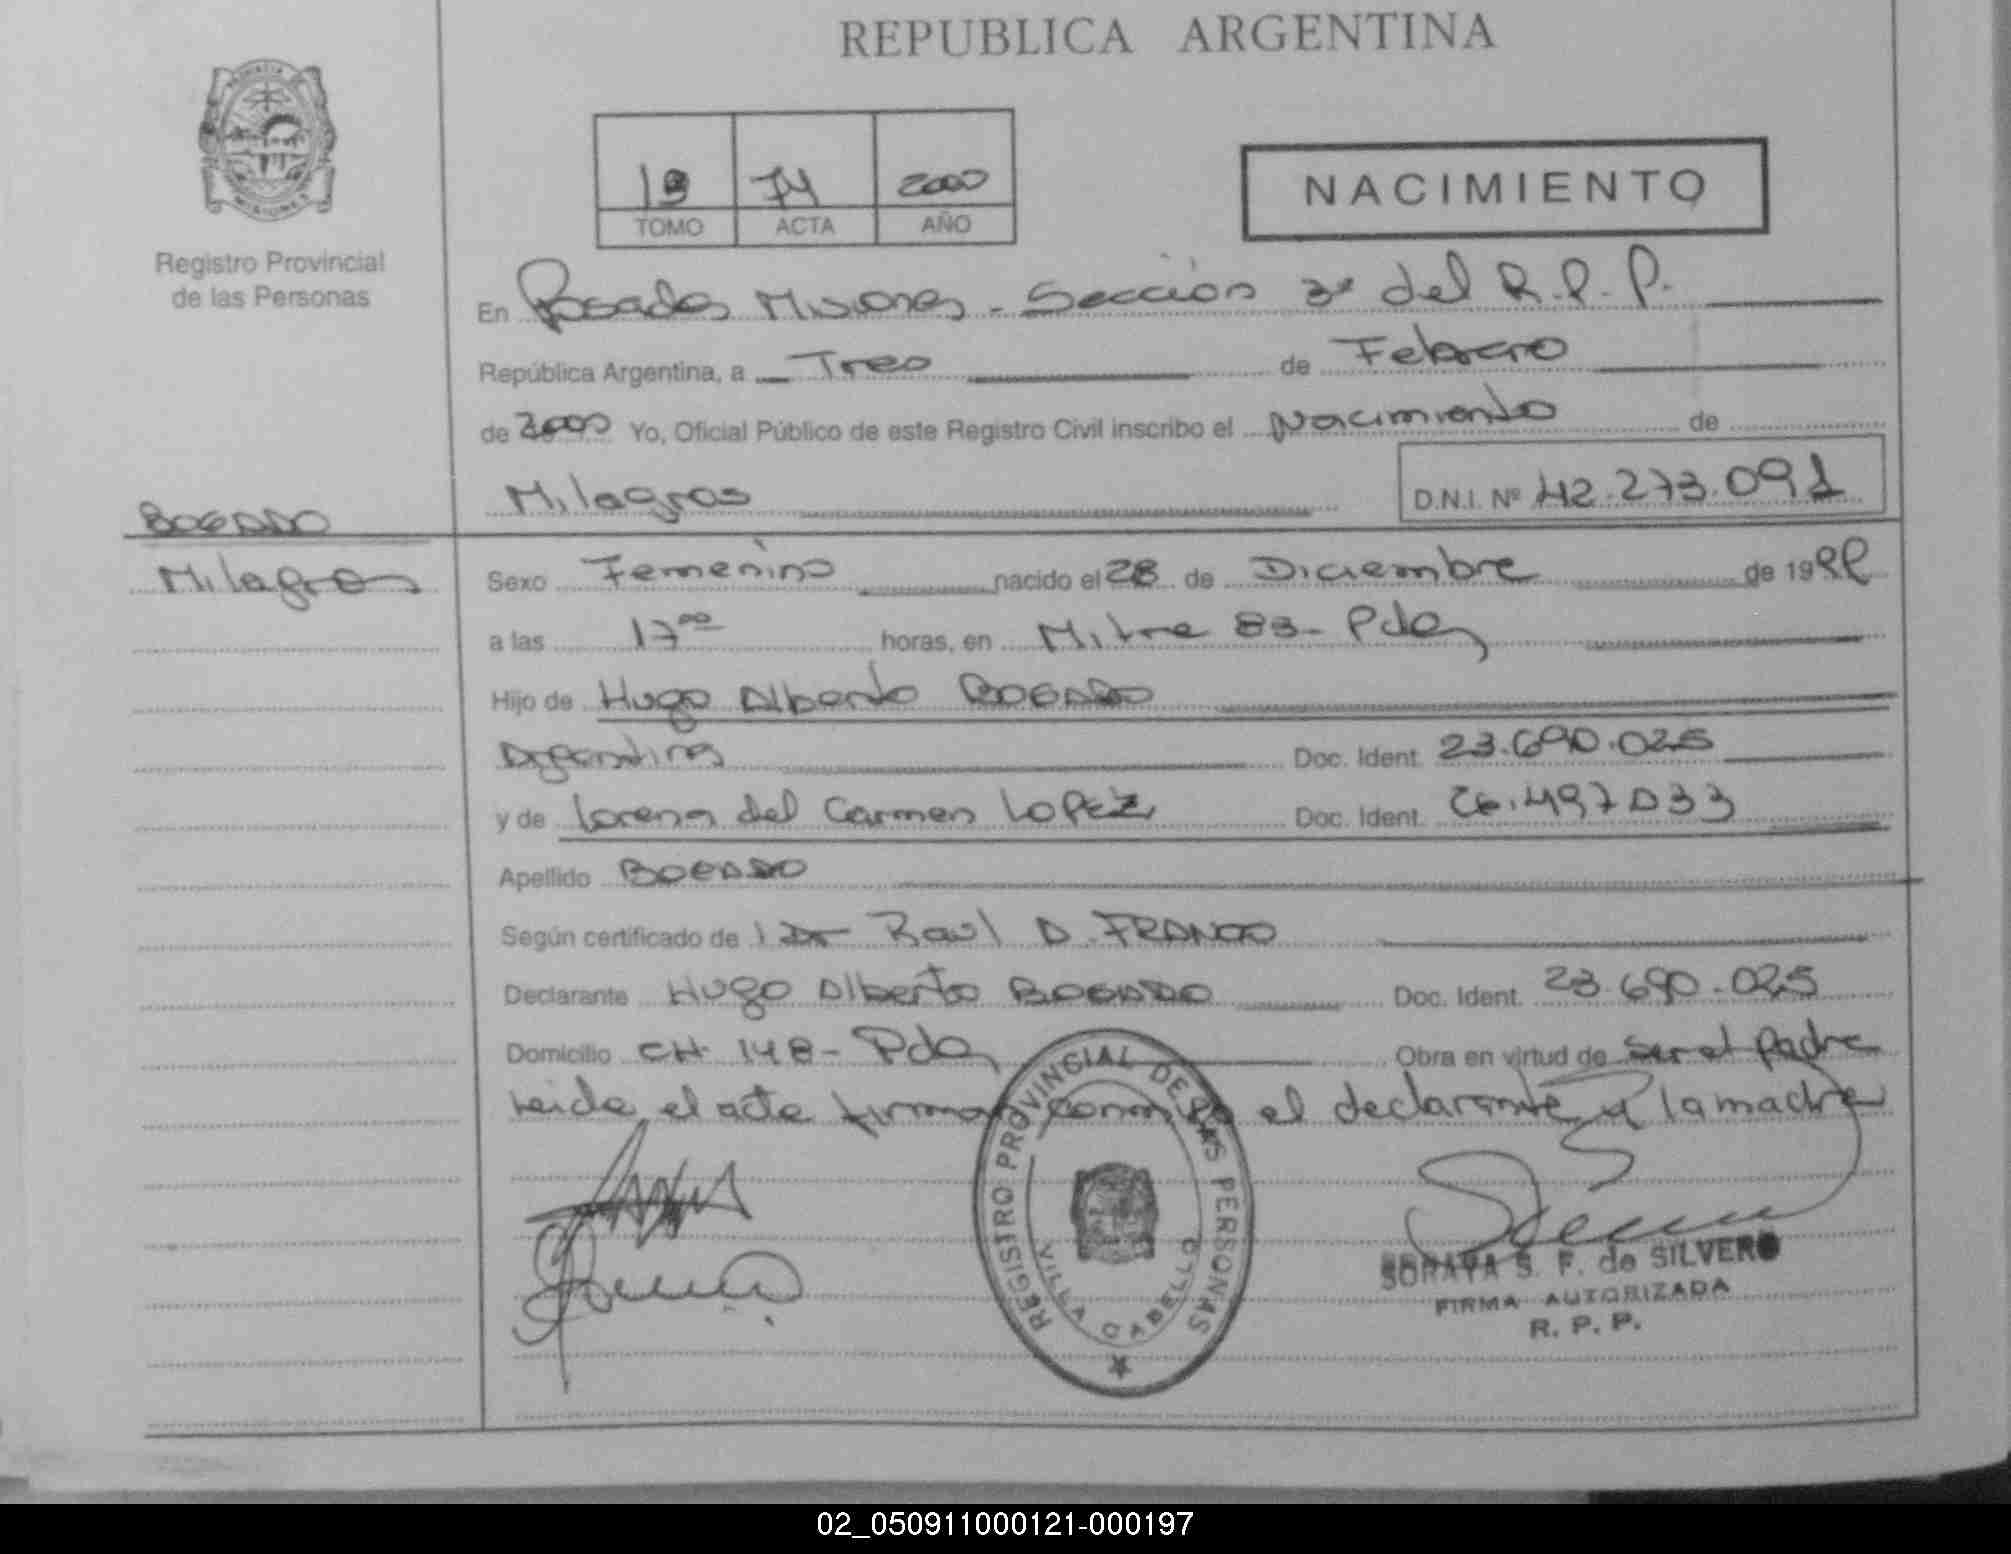 REPUBLICA ARGENTINA
PROVINCIA DE MISIONES
Registro Provincial
de las Personas
74 2000
TOMO ACTA AÑO
NACIMIENTO
En Posadas Misiones - Sección 3ª del R.P.P.
República Argentina, a Tres de Febrero
de 2000 Yo, Oficial Público de este Registro Civil inscribo el Nacimiento de
Milagros D.N.I. Nº 42.273.091
BOGADO
Milagros
Sexo Femenino nacido el 28 de Diciembre de 1999
a las 17⁰⁰ horas, en Mitre 83- Pdas
Hijo de Hugo Alberto BOGADO
Argentina Doc. Ident. 23.690.025
y de Lorena del Carmen LOPEZ Doc. Ident. 26.497.033
Apellido BOGADO
Según certificado de Raúl A. FRANCO
Declarante Hugo Alberto BOGADO Doc. Ident. 23.690.025
Domicilio CH 148- Pdas Obra en virtud de ser el padre
Leida el acta firman conmigo el declarante y la madre
REGISTRO PROVINCIAL DE LAS PERSONAS
VILLA CABELLO
SORAYA S. F. de SILVERO
FIRMA AUTORIZADA
R. P. P.
02_050911000121-000197